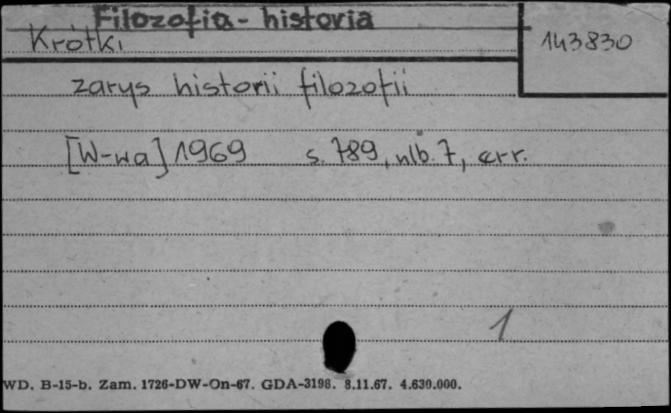 Filozofia - historia
Krótki
143830
zarys historii filozofii
[W-wa] 1969 s. 789, nlb. 7, err.
1
WD. B-15-b. Zam. 1726-DW-On-67. GDA-3198. 8.11.67. 4.630.000.